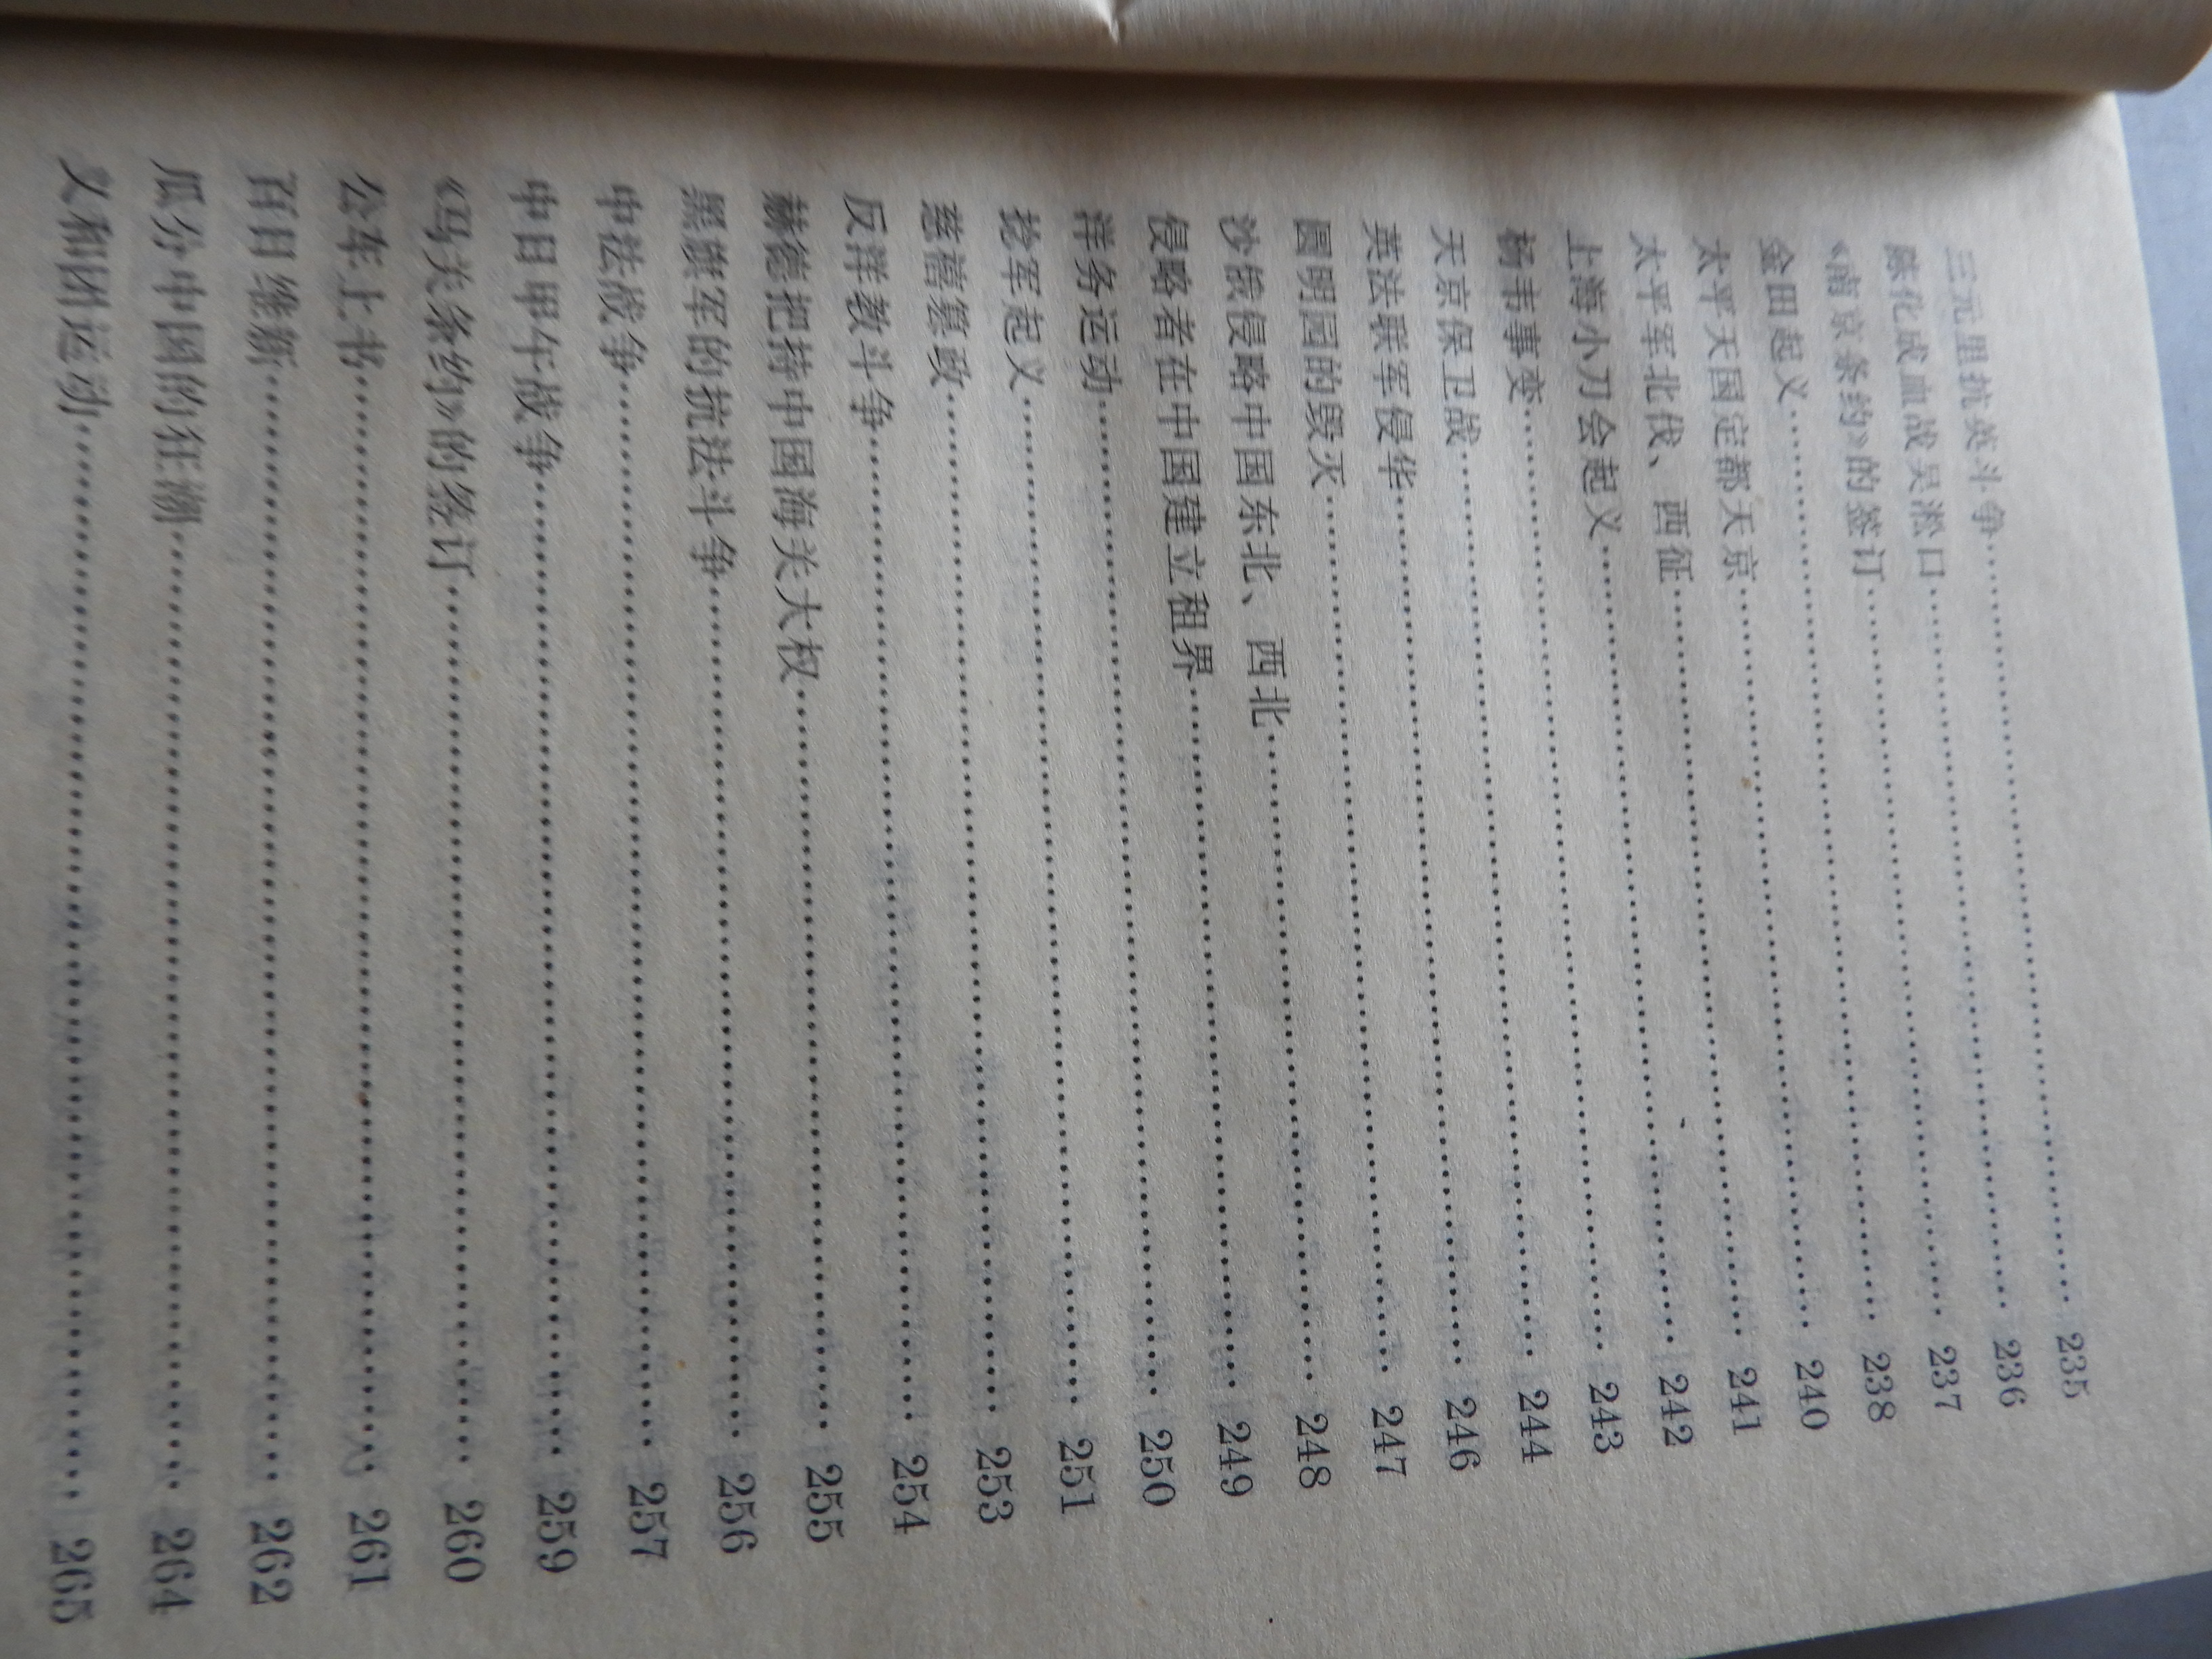 三元里抗英斗争……………………………… 235
陈化成血战吴淞口……………………………… 236
《南京条约》的签订……………………………… 237
金田起义……………………………… 238
太平天国定都天京……………………………… 240
太平军北伐、西征……………………………… 241
上海小刀会起义……………………………… 242
杨韦事变……………………………… 243
天京保卫战……………………………… 244
英法联军侵华……………………………… 246
圆明园的毁灭……………………………… 247
沙俄侵略中国东北、西北……………………………… 248
侵略者在中国建立租界……………………………… 249
洋务运动……………………………… 250
捻军起义……………………………… 251
慈禧篡政……………………………… 253
反洋教斗争……………………………… 254
赫德把持中国海关大权……………………………… 255
黑旗军的抗法斗争……………………………… 256
中法战争……………………………… 257
中日甲午战争……………………………… 259
《马关条约》的签订……………………………… 260
公车上书……………………………… 261
百日维新……………………………… 262
瓜分中国的狂潮……………………………… 264
义和团运动……………………………… 265